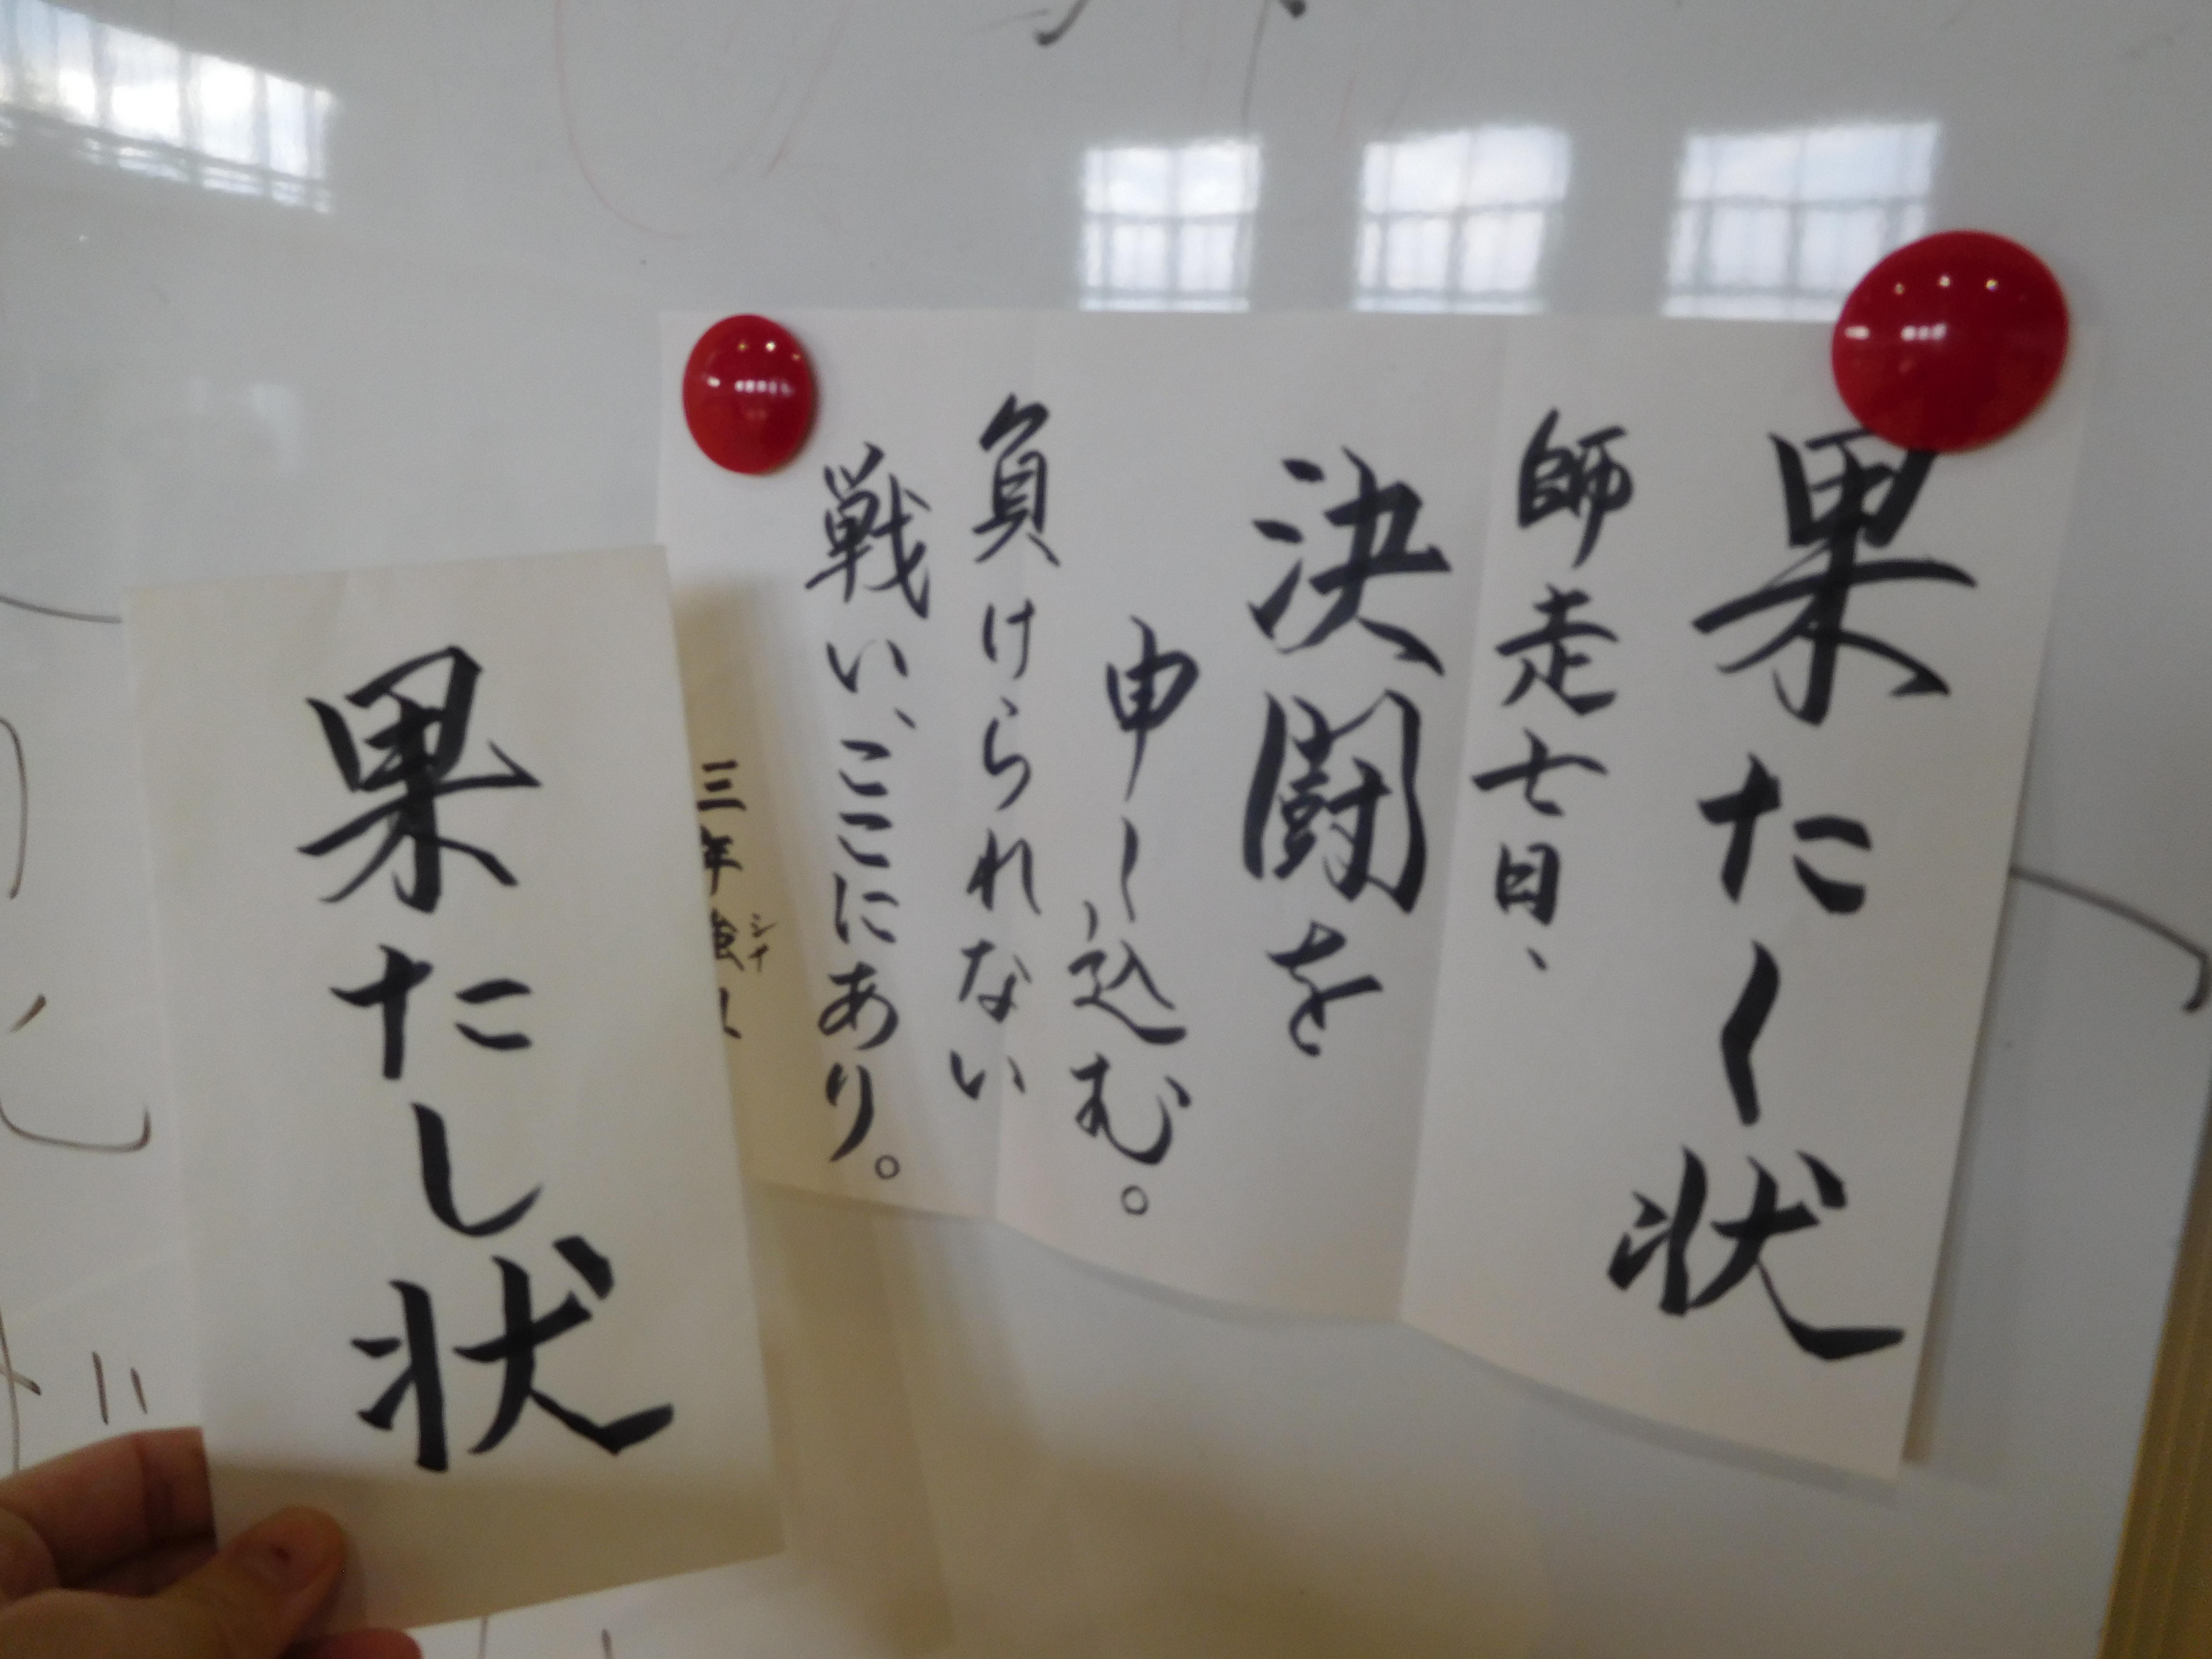 果たし状
師走七日、
決闘を
申し込む。
負けられない
戦い、ここにあり。
三年
シナ
果たし状